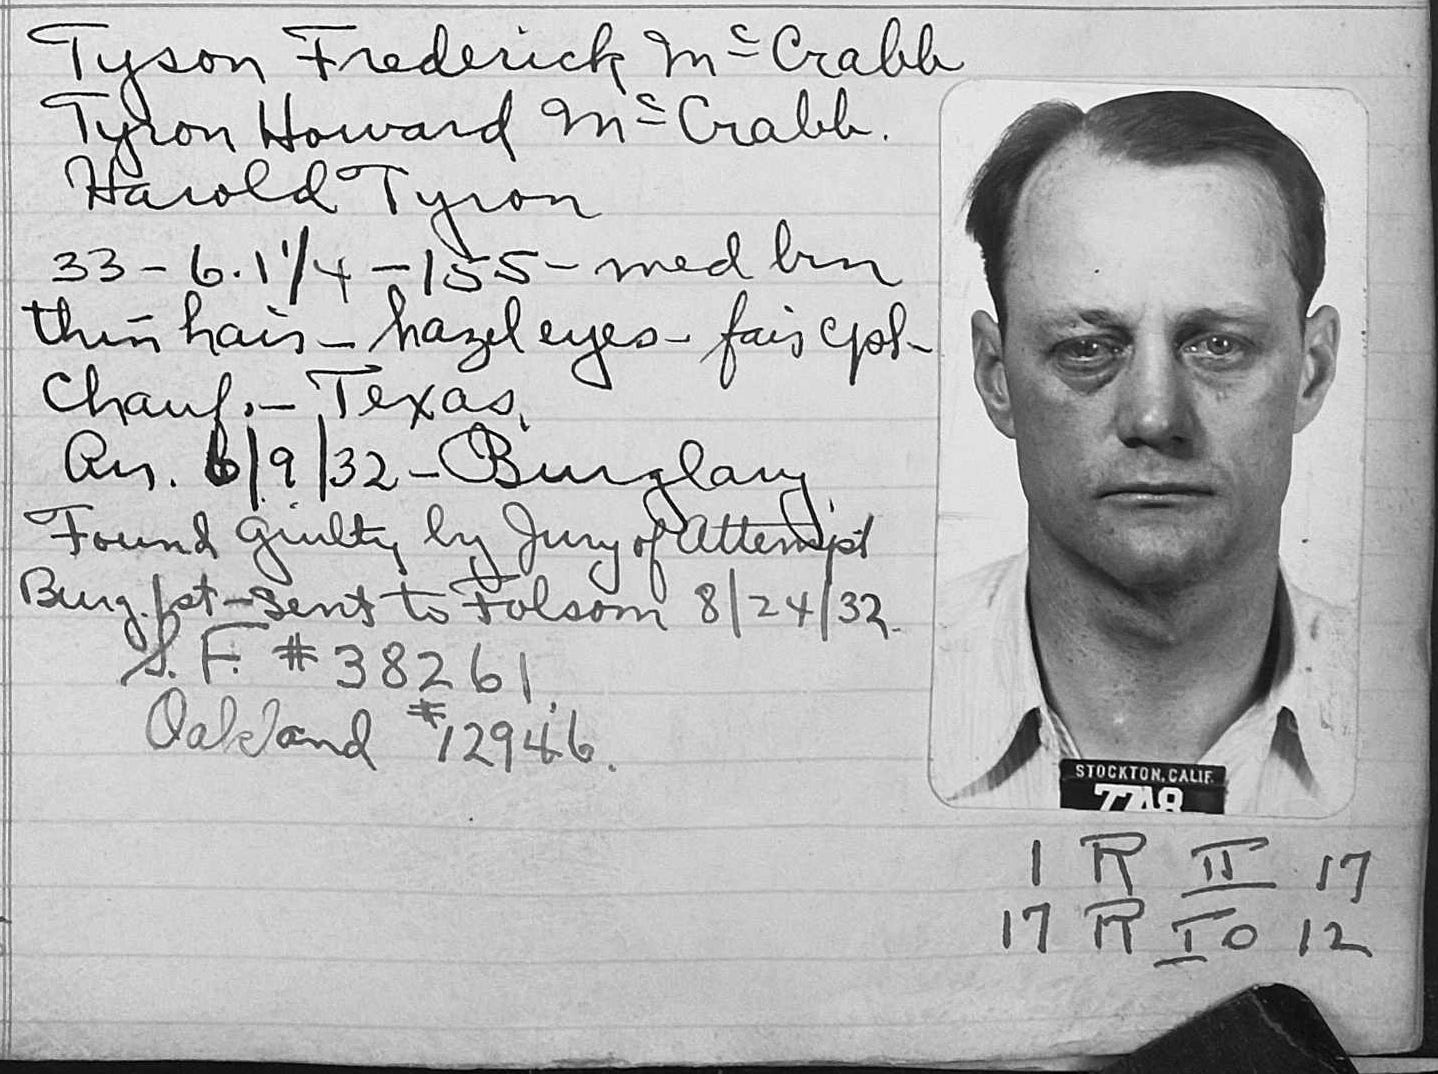 Tyson Frederick McCrabb
Tyron Howard McCrabb.
Harold Tyron
33 - 6.1 1/4 - 155 - med brn
thin hair - hazel eyes - fair cpl -
Chauf. - Texas.
Arr. 6/9/32 - Burglary
Found guilty by Jury of Attempt
Burg. 1st - Sent to Folsom 8/24/32.
S.F. # 38261.
Oakland # 12946.
STOCKTON, CALIF.
7748
1 R II 17
17 R IO 12